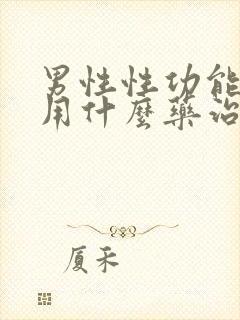 男性性功能
用什麼藥治
厦禾